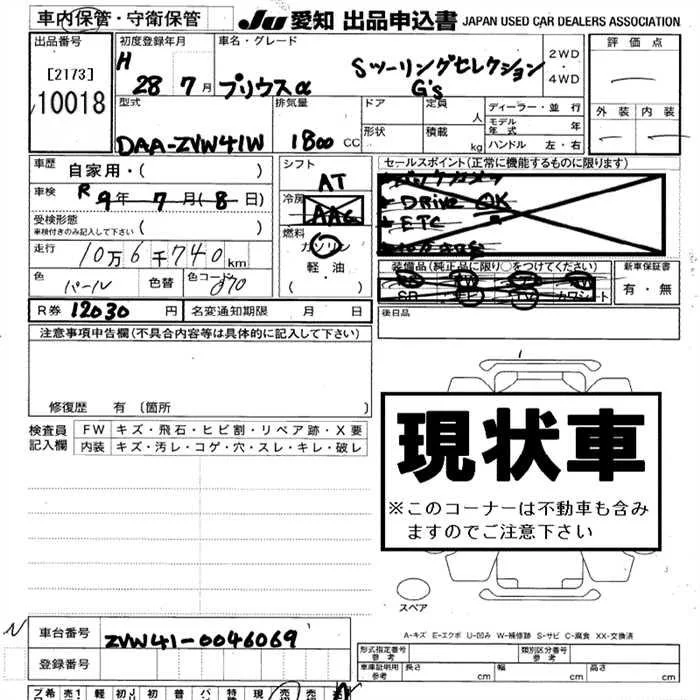 車内保管・守衛保管 JU 愛知 出品申込書 JAPAN USED CAR DEALERS ASSOCIATION
出品番号
[2173]
10018
初度登録年月
H
28 7月
車名・グレード
プリウスα
Sツーリングセレクション
G's
2WD
・
4WD
評価点
外装 内装
型式
DAA-ZVW41W
排気量
1800 CC
ドア
形状
定員
人
積載
kg
ディーラー・並行
モデル年式
年
ハンドル 左・右
車歴
自家用・( )
車検
R 9年 7月(8日)
受検形態
車検付きのみ記入して下さい ( )
走行
10万6千740km
色
パール
色替
色コード
070
シフト
AT
冷房
AAC
燃料
ガソリン
軽油
( )
セールスポイント(正常に機能するものに限ります)
バックカメラ
DRive OK
ETC
装備品(純正品に限り○をつけてください)
SR TV カワシート
新車保証書
有・無
R券 12030 円
名変通知期限 月 日
後日品
注意事項申告欄(不具合内容等は具体的に記入して下さい)
修復歴 有 〔箇所 〕
検査員
記入欄
FW キズ・飛石・ヒビ割・リペア跡・X要
内装 キズ・汚レ・コゲ・穴・スレ・キレ・破レ
現状車
※このコーナーは不動車も含み
ますのでご注意下さい
スペア
A-キズ E-エクボ U-凹み W-補修跡 S-サビ C-腐食 XX-交換済
車台番号
ZVW41-0046069
登録番号
形式指定番号
参考
類別区分番号
参考
車庫証明用
参考
長さ cm 幅 cm 高さ cm